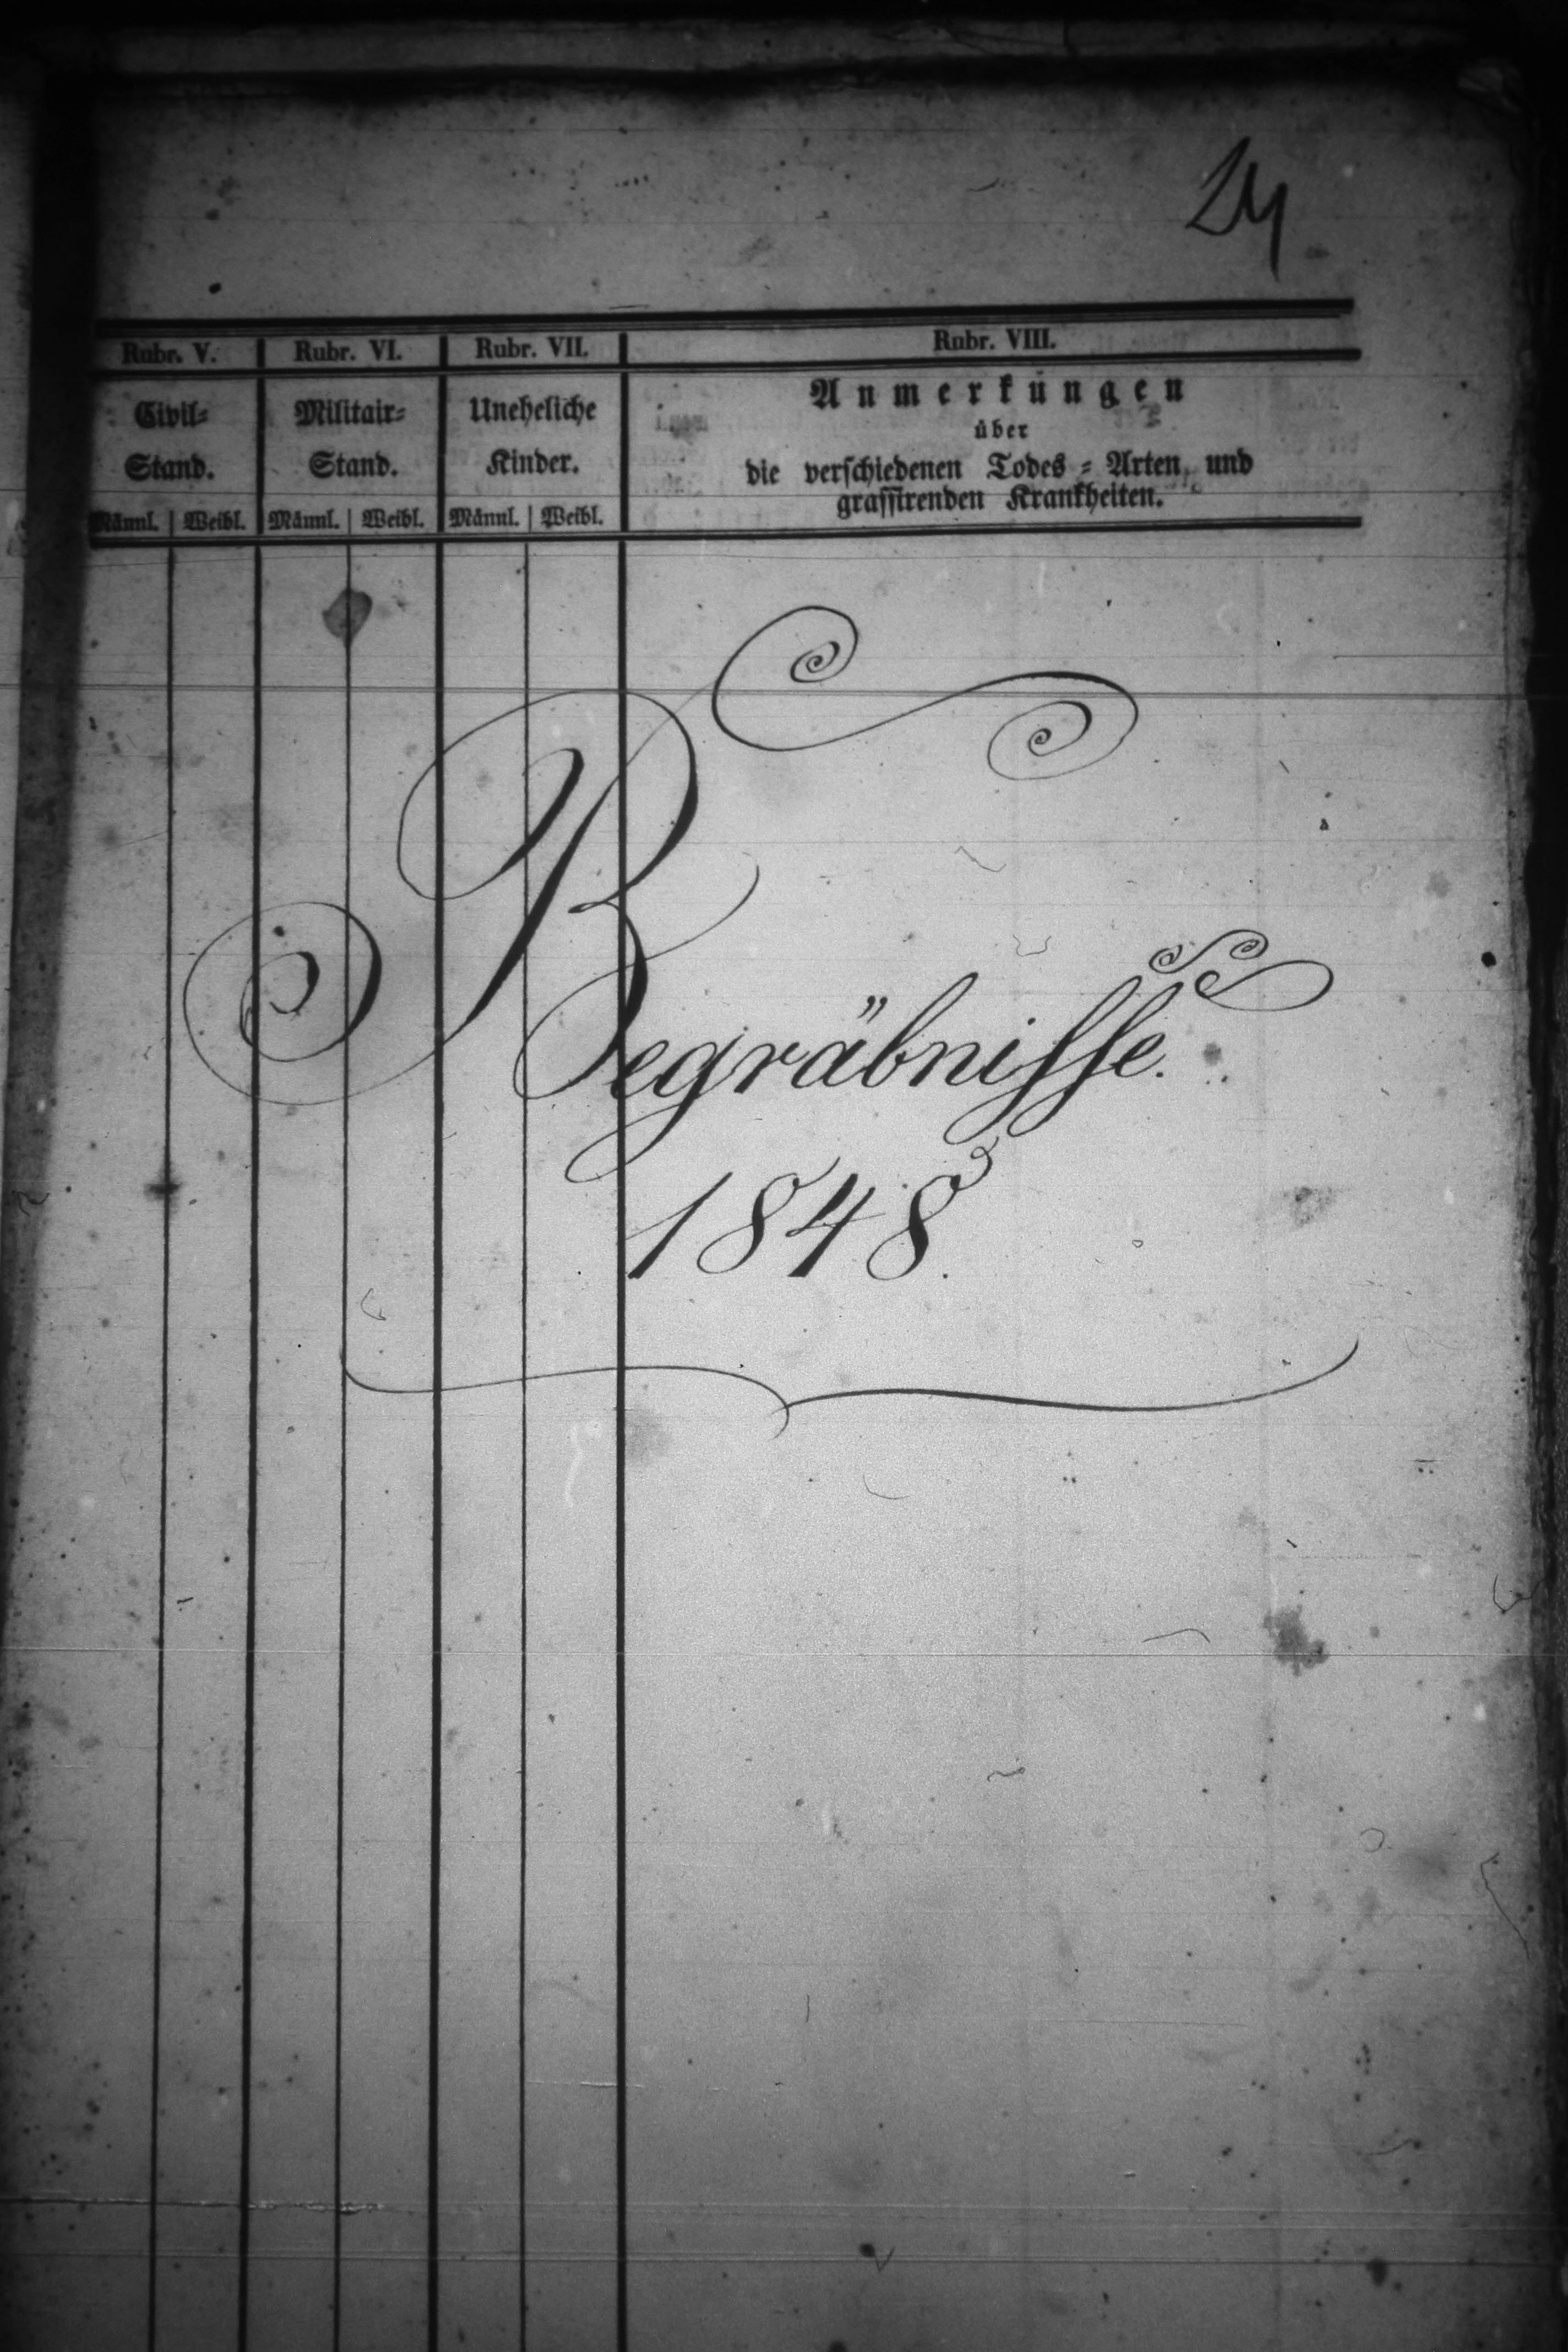 24
Rubr. V. Rubr. VI. Rubr. VII. Rubr. VIII.
Civil=
Stand.
Militair=
Stand.
Uneheliche
Kinder.
Anmerkungen
über
die verschiedenen Todes = Arten und
grassirenden Krankheiten.
Männl. Weibl. Männl. Weibl. Männl. Weibl.
Begräbnisse.
1848.